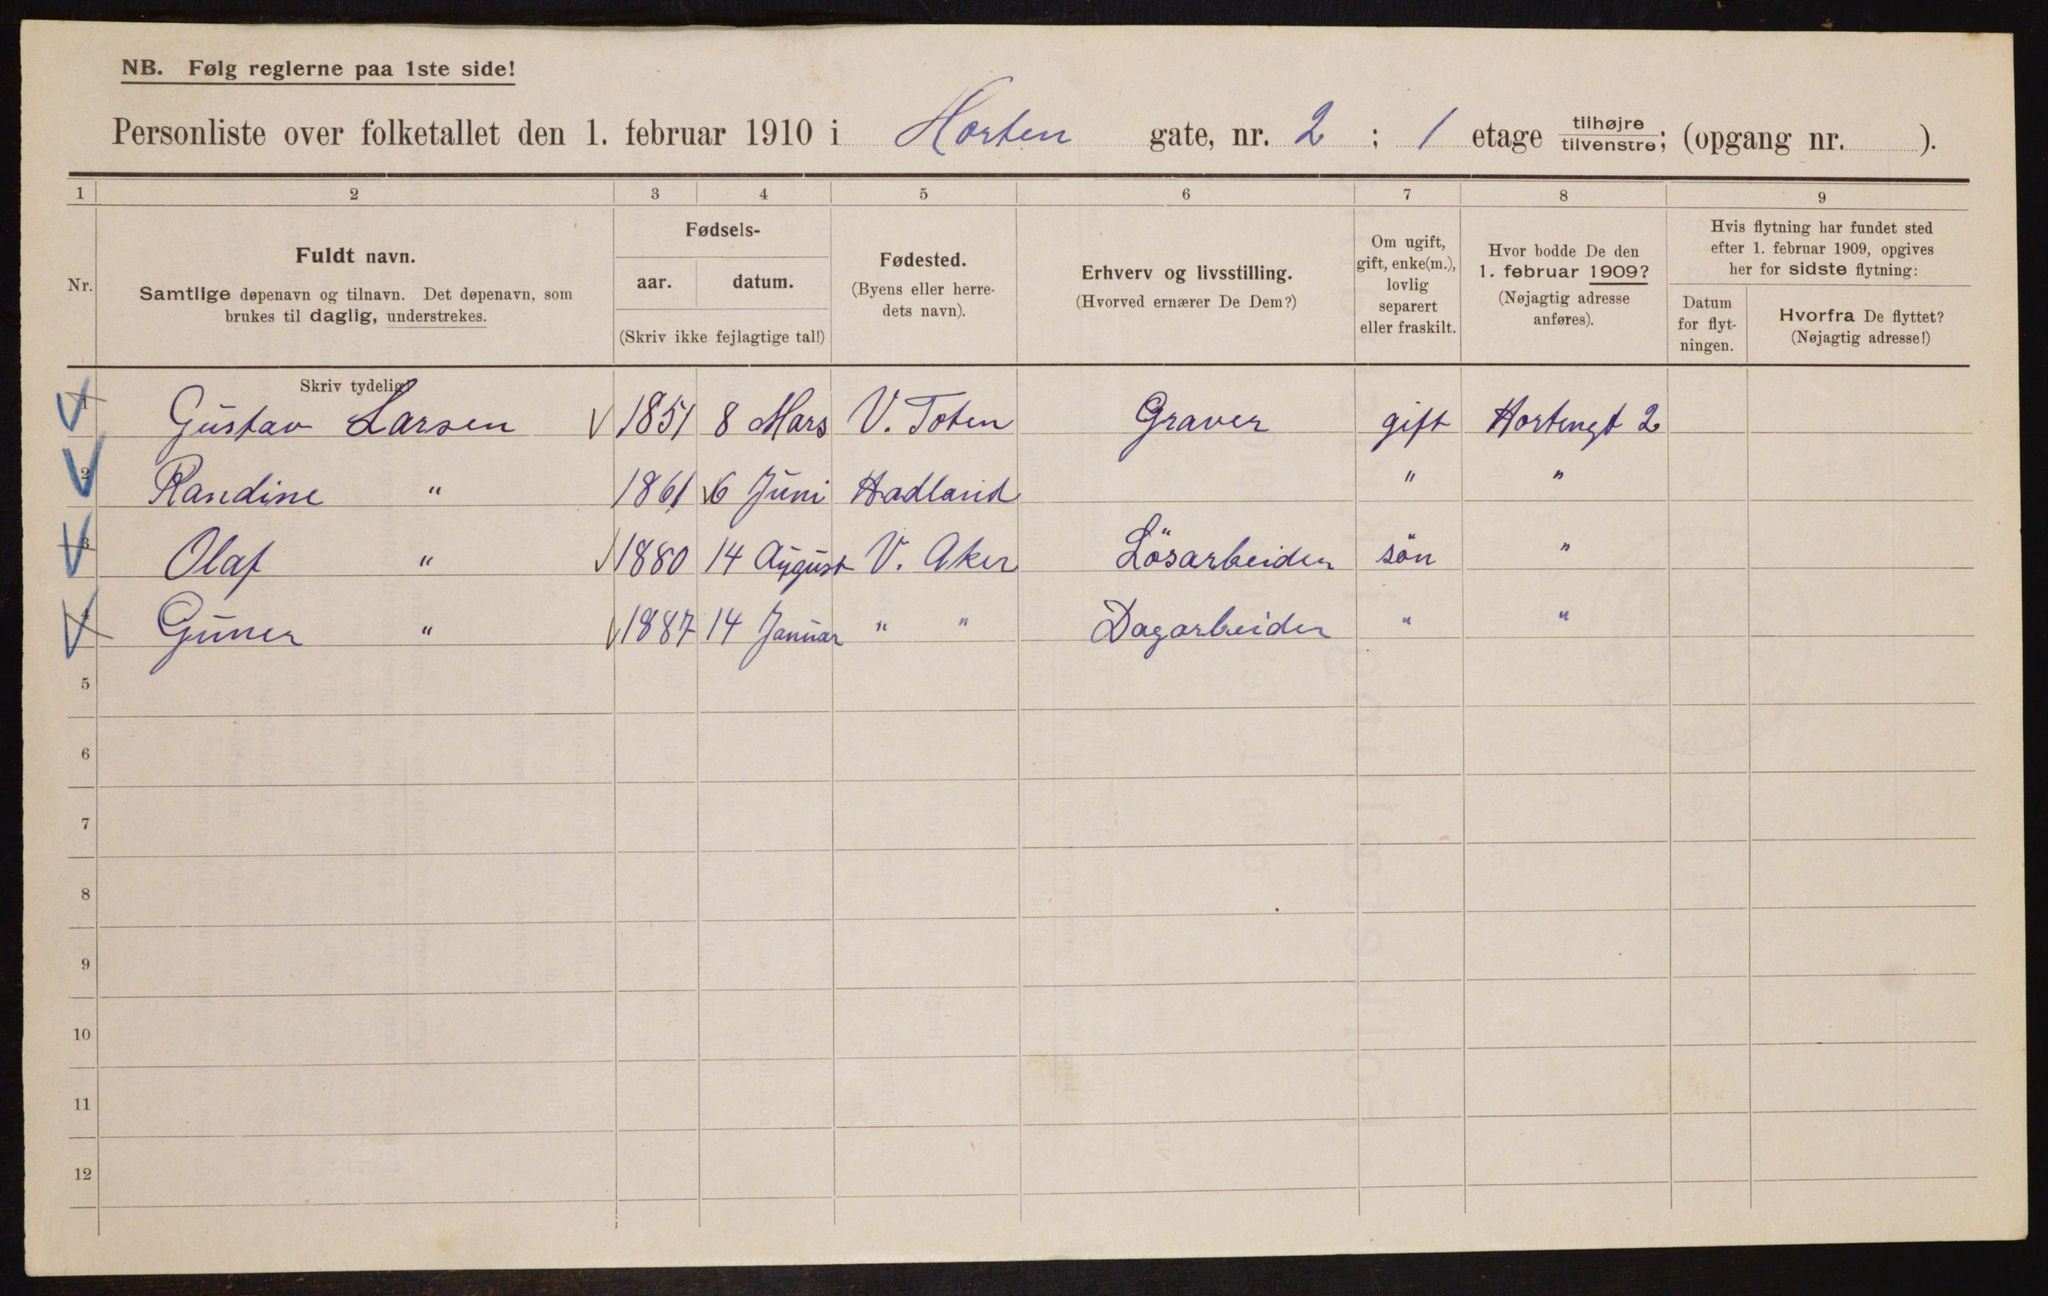 NB. Følg reglerne paa 1ste side!
Personliste over folketallet den 1. februar 1910 i Horten gate, nr. 2 ; 1 etage tilhøjre tilvenstre; (opgang nr. ).
1 2 3 4 5 6 7 8 9
Nr.
Fuldt navn.
Samtlige døpenavn og tilnavn. Det døpenavn, som
brukes til daglig, understrekes.
Skriv tydelig
Fødsels-
aar. datum.
(Skriv ikke fejlagtige tal!)
Fødested.
(Byens eller herre-
dets navn).
Erhverv og livsstilling.
(Hvorved ernærer De Dem?)
Om ugift,
gift, enke(m.),
lovlig
separert
eller fraskilt.
Hvor bodde De den
1. februar 1909?
(Nøjagtig adresse
anføres).
Hvis flytning har fundet sted
efter 1. februar 1909, opgives
her for sidste flytning:
Datum
for flyt-
ningen.
Hvorfra De flyttet?
(Nøjagtig adresse!)
1 Gustav Larsen 1851 8 Mars V. Toten Graver gift Hortengt 2
2 Randine " 1861 6 Juni Hadland " "
3 Olaf " 1880 14 August V. Aker Lösarbeider sön "
4 Guner " 1887 14 Januar " " Dagarbeider " "
5
6
7
8
9
10
11
12